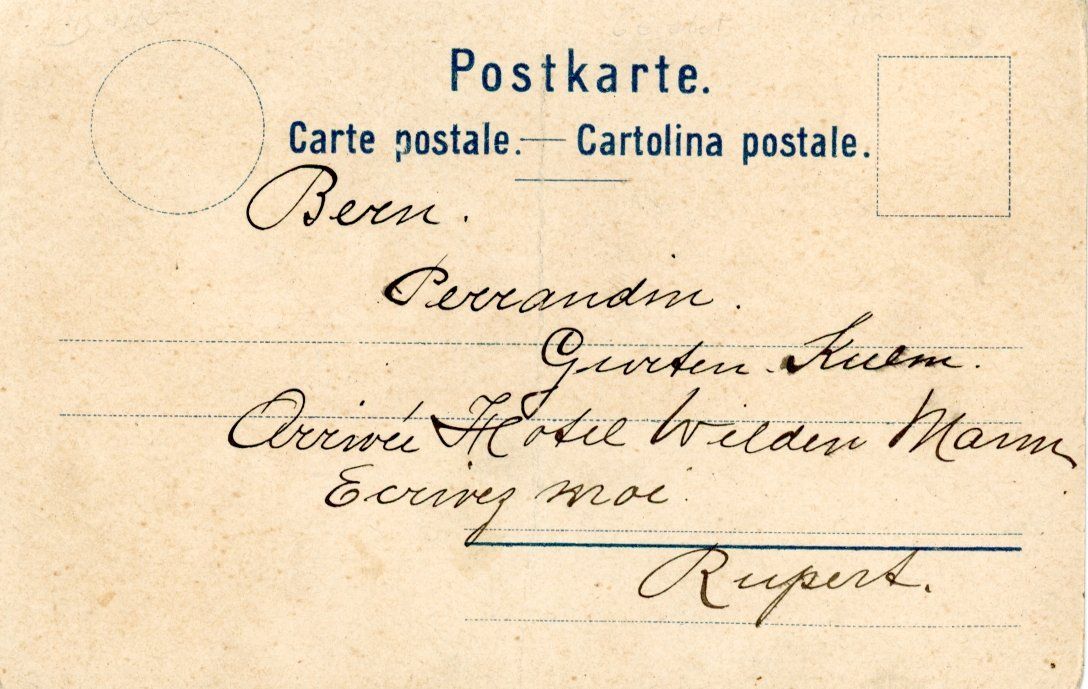 Postkarte.
Carte postale. — Cartolina postale.
Bern.
Perrandin.
Gurten-Kulm.
Arrivée Hotel Wilden Mann
Ecrivez moi.
Rupert.